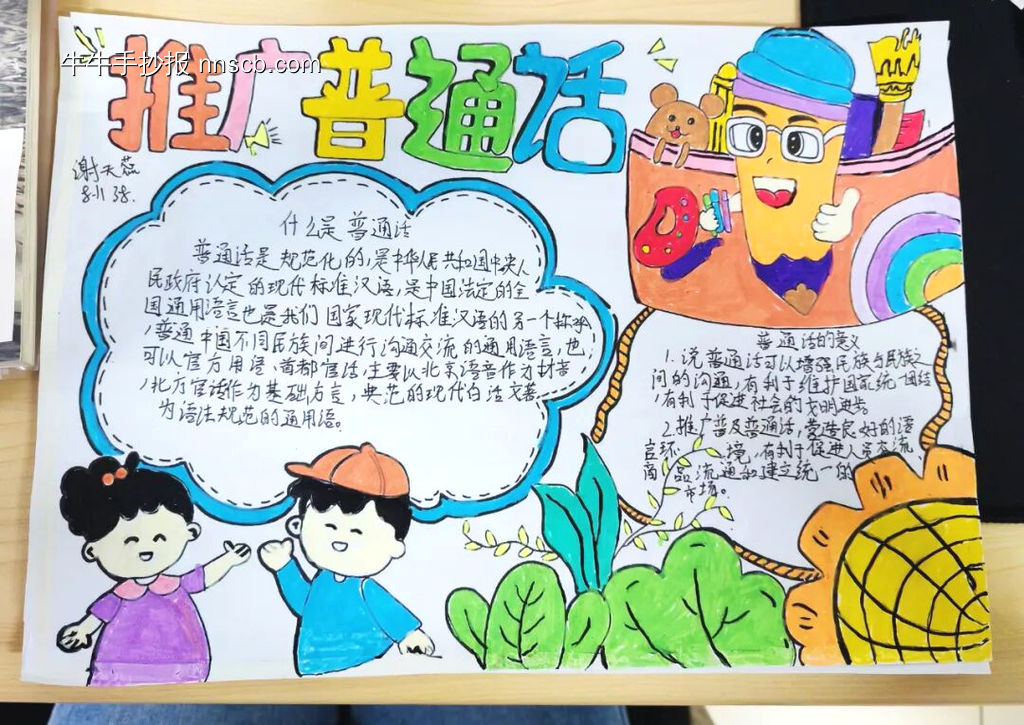 牛牛手抄报 nnscb.com
推广普通话
谢天蕊
811 38.
什么是普通话
普通话是规范化的,是中华人民共和国中央人
民政府认定的现代标准汉语,是中国法定的全
国通用语言也是我们国家现代标准汉语的另一个称呼
,普通中国不同民族间进行沟通交流的通用语言,也
可以官方用语、首都官话,主要以北京语音作为
,北方官话作为基础方言,典范的现代白话文著
为语法规范的通用语。
普通话的意义
1.说普通话可以增强民族与民族之
间的沟通,有利于维护国家统一团结
,有利于促进社会的文明进步。
2.推广普及普通话,营造良好的语
言环 境,有利于促进人员交流
商品流通和建立统一的
市场。